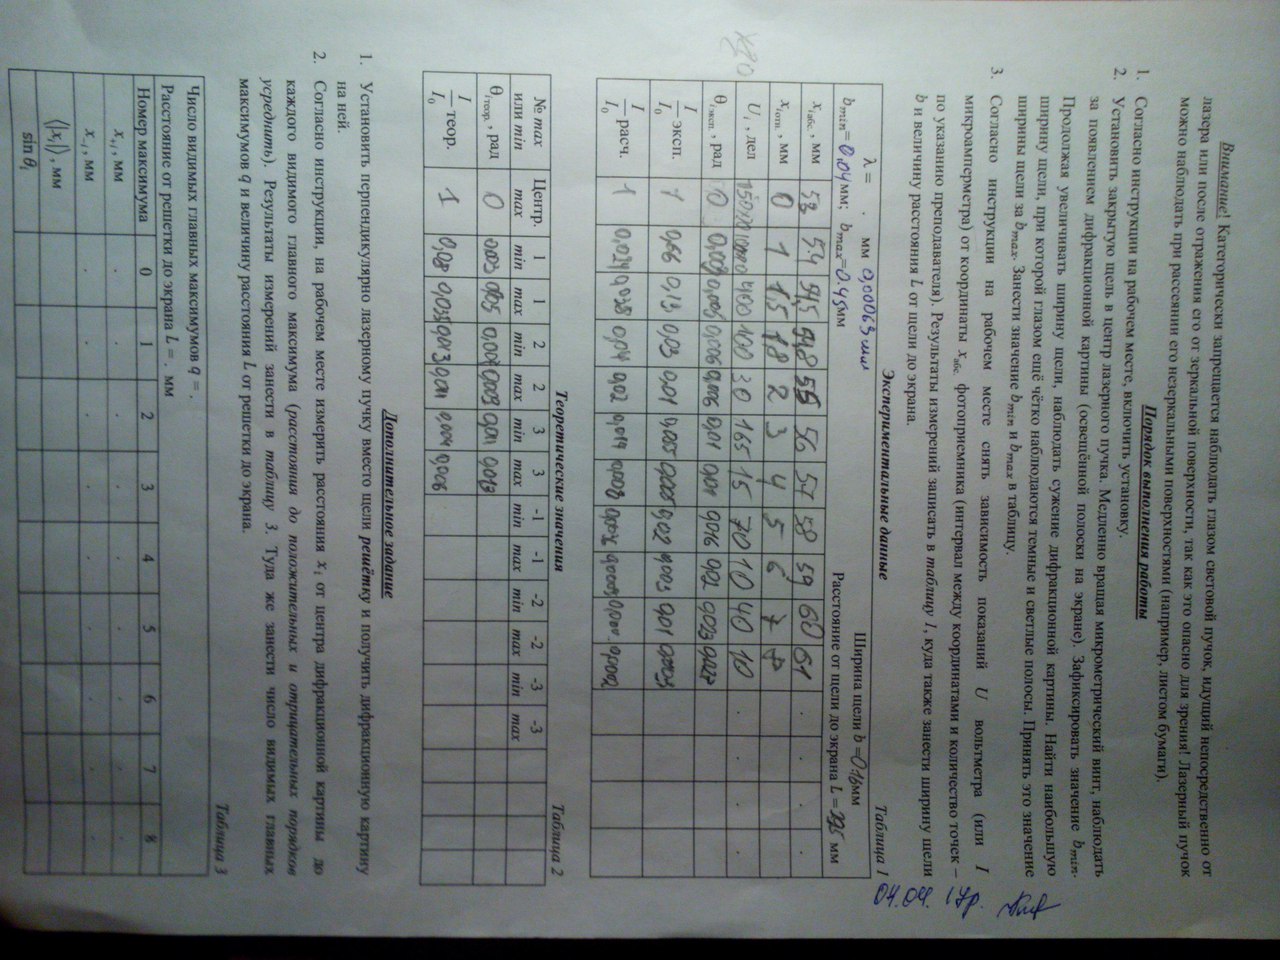 Внимание! Категорически запрещается наблюдать глазом световой пучок, идущий непосредственно от
лазера или после отражения его от зеркальной поверхности, так как это опасно для зрения! Лазерный пучок
можно наблюдать при рассеянии его незеркальными поверхностями (например, листом бумаги).
Порядок выполнения работы
1. Согласно инструкции на рабочем месте, включить установку.
2. Установить закрытую щель в центр лазерного пучка. Медленно вращая микрометрический винт, наблюдать
за появлением дифракционной картины (освещённой полоски на экране). Зафиксировать значение bmin.
Продолжая увеличивать ширину щели, наблюдать сужение дифракционной картины. Найти наибольшую
ширину щели, при которой глазом ещё чётко наблюдаются темные и светлые полосы. Принять это значение
ширины щели за bmax. Занести значение bmin и bmax в таблицу.
3. Согласно инструкции на рабочем месте снять зависимость показаний U вольтметра (или I
микроамперметра) от координаты xабс. фотоприемника (интервал между координатами и количество точек –
по указанию преподавателя). Результаты измерений записать в таблицу 1, куда также занести ширину щели
b и величину расстояния L от щели до экрана.
04.04. 1 ур.
Таблица 1
Экспериментальные данные
λ = . мм 0,00063 мм Ширина щели b = 0.16 мм
bmin = 0,04 мм; bmax = 0.45 мм Расстояние от щели до экрана L = мм
xiабс., мм 53 54 54,5 54,8 55 56 57 58 59 60 61
xiотн., мм 0 1 1,5 1,8 2 3 4 5 6 7 8
Ui, дел 400 100 30 165 15 70 10 40 10
θiэксп., рад 0 0,006 0,006 0,01 0,01 0,016 0,02 0,023 0,027
I/I0 эксп. 1 0,66 0,13 0,03 0,01 0,01
I/I0 расч. 1 0,02
Таблица 2
Теоретические значения
№ max или min Центр. max 1 min 1 max 2 min 2 max 3 min 3 max -1 min -1 max -2 min -2 max -3 min -3 max
θiтеор., рад 0 0,01 0,013
I/I0 теор. 1 0,08
Дополнительное задание
1. Установить перпендикулярно лазерному пучку вместо щели решётку и получить дифракционную картину
на ней.
2. Согласно инструкции, на рабочем месте измерить расстояния xi от центра дифракционной картины до
каждого видимого главного максимума (расстояния до положительных и отрицательных порядков
усреднить). Результаты измерений занести в таблицу 3. Туда же занести число видимых главных
максимумов q и величину расстояния L от решетки до экрана.
Таблица 3
Число видимых главных максимумов q = .
Расстояние от решетки до экрана L = . мм
Номер максимума 0 1 2 3 4 5 6 7 8
x+i, мм
x-i, мм
⟨|xi|⟩, мм
sin θi